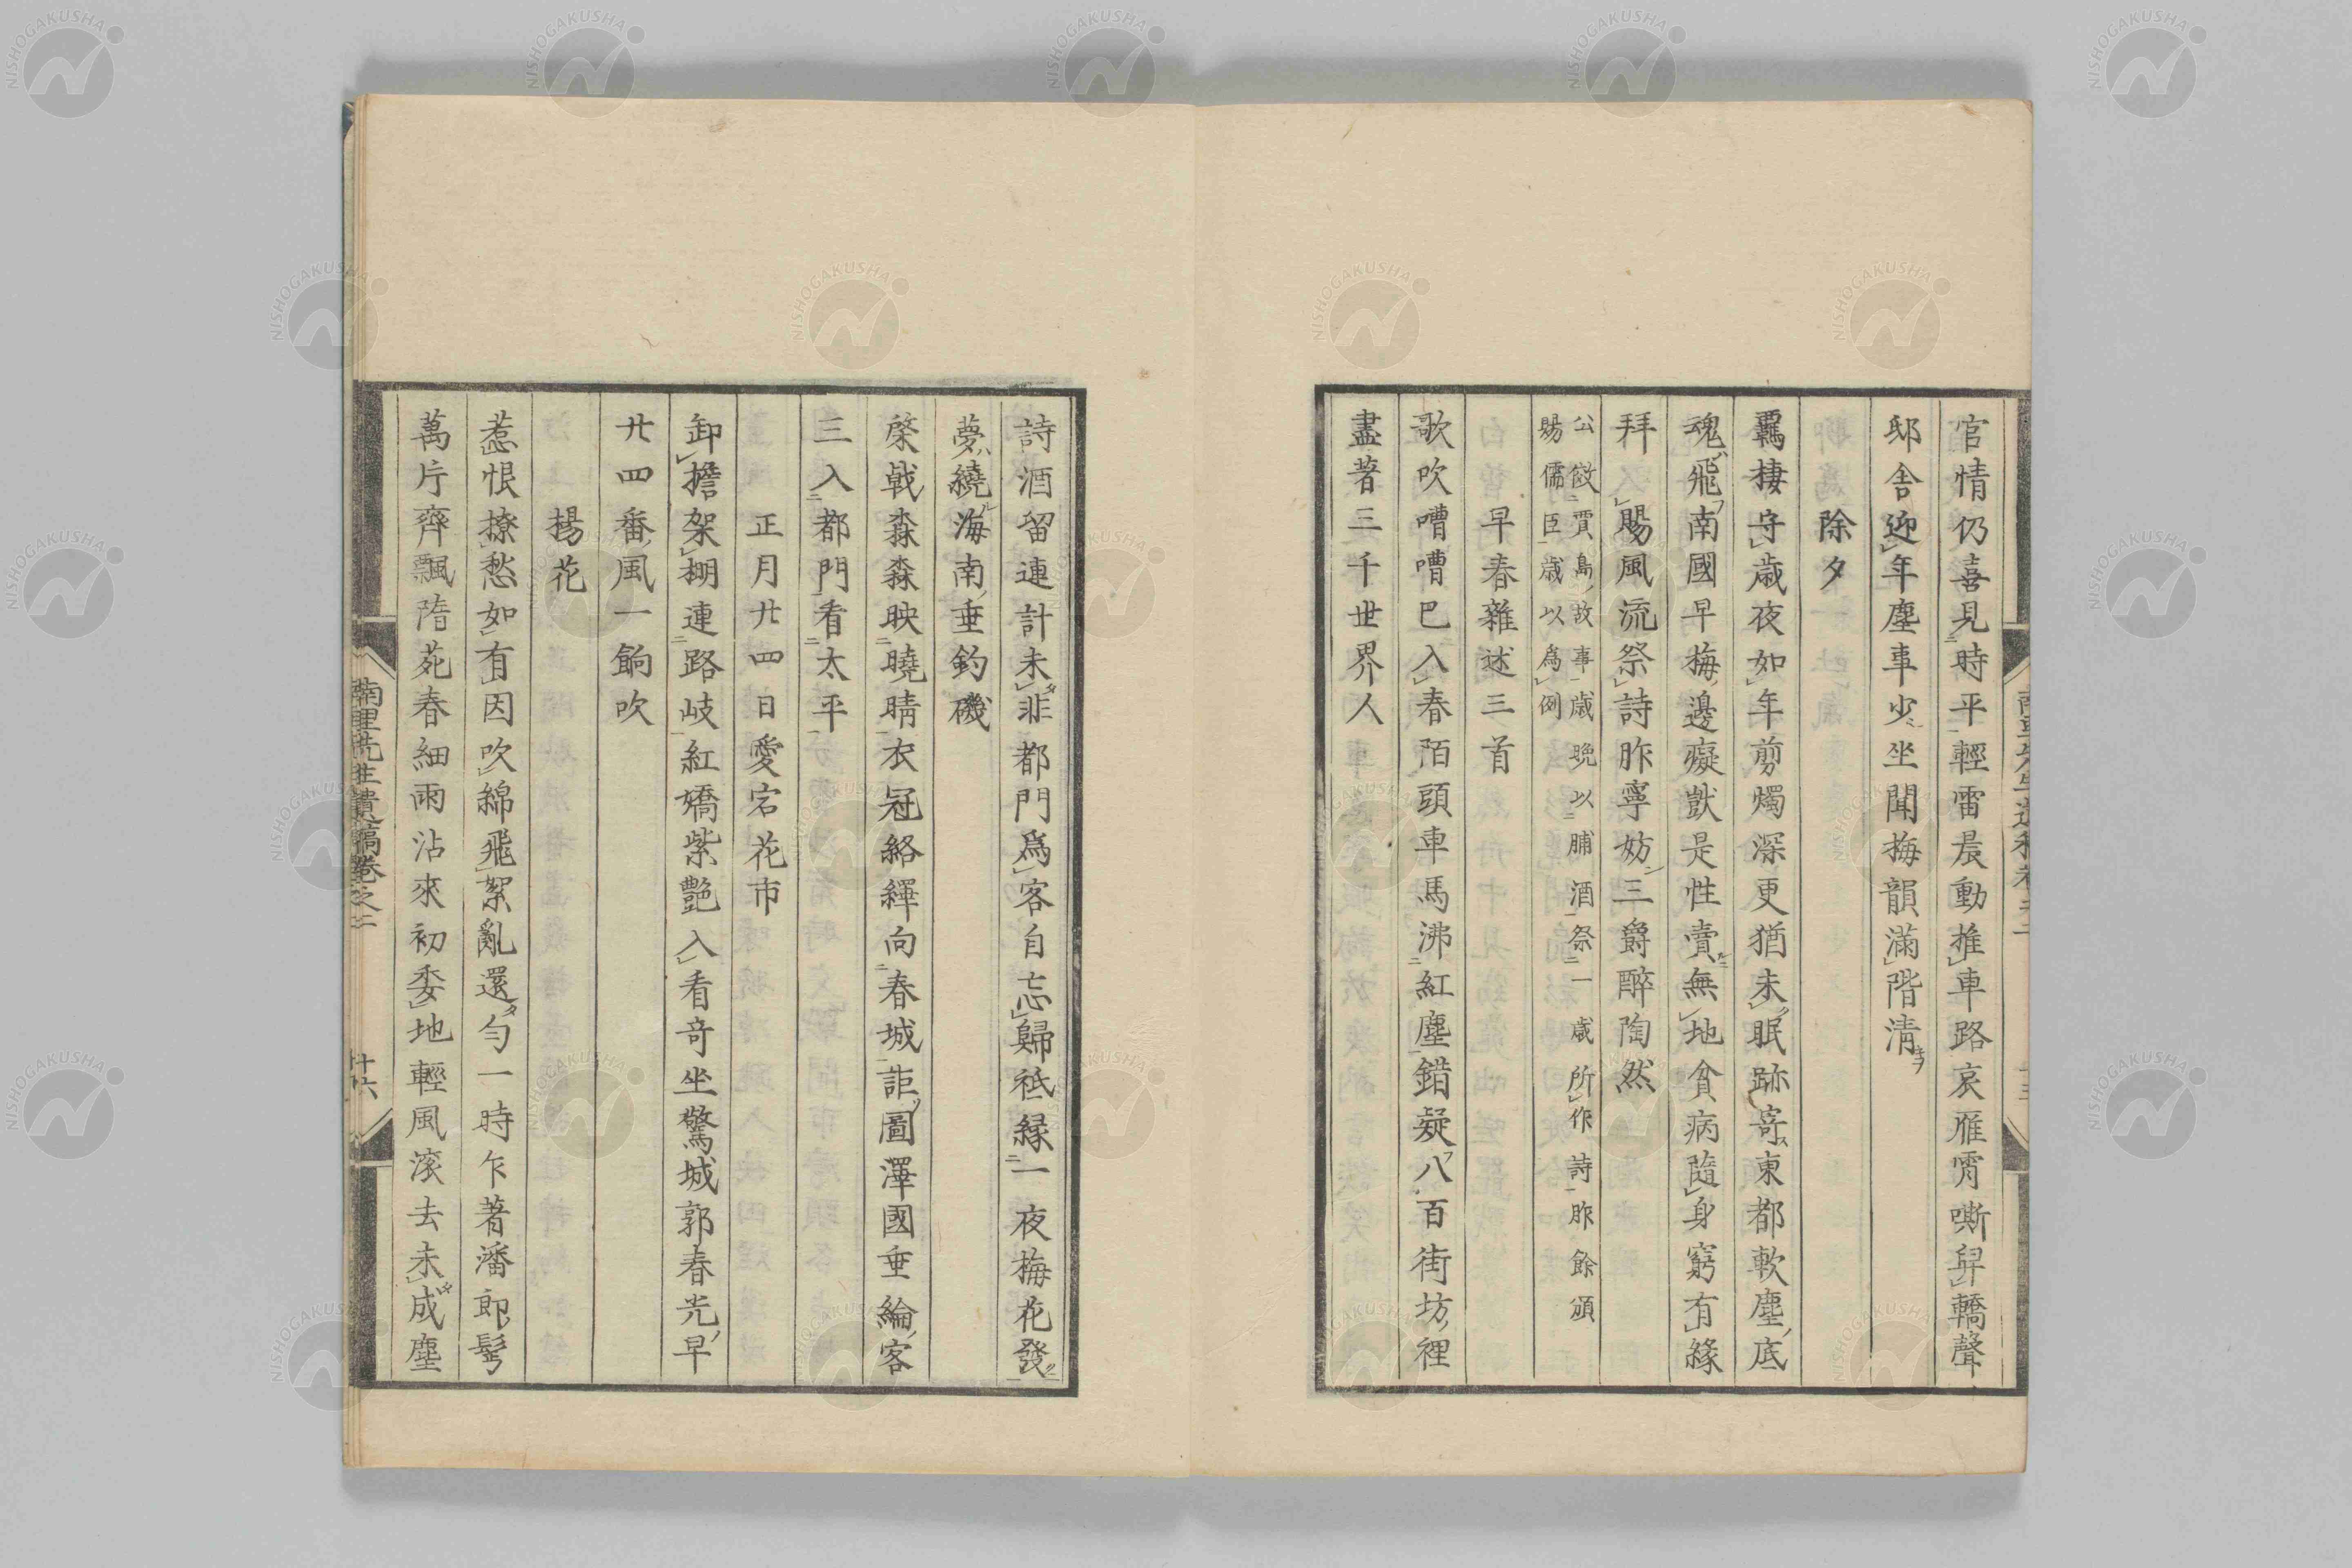 官情仍喜見時平輕雷晨動推車路哀雁霄嘶舁轎聲
邸舎迎年塵事少坐聞梅韻滿階清
除夕
羈棲守歳夜如年剪燭深更猶未眠跡寄東都軟塵底
魂飛南國早梅邊癡獃是性賣無地貧病隨身窮有緣
拜賜風流祭詩胙寧妨三爵醉陶然
公倣賈島故事歳晩以脯酒祭一歳所作詩胙餘頒
賜儒臣歳以為例
早春雜述三首
歌吹嘈嘈巳入春陌頭車馬沸紅塵錯疑八百街坊裡
盡著三千世界人
詩酒留連計未非都門爲客自忘歸祗緣一夜梅花發
夢繞海南垂釣磯
棨戟森森映曉晴衣冠絡繹向春城詎圖澤國垂綸客
三入都門看太平
正月廿四日愛宕花市
卸擔架棚連路岐紅嬌紫艶入看奇坐驚城郭春光早
廿四番風一餉吹
楊花
惹恨撩愁如有因吹綿飛絮亂還勻一時乍著潘郎鬂
萬片齊飄隋苑春細雨沾來初委地輕風滚去未成塵
南里先生遺稿巻之二
十六